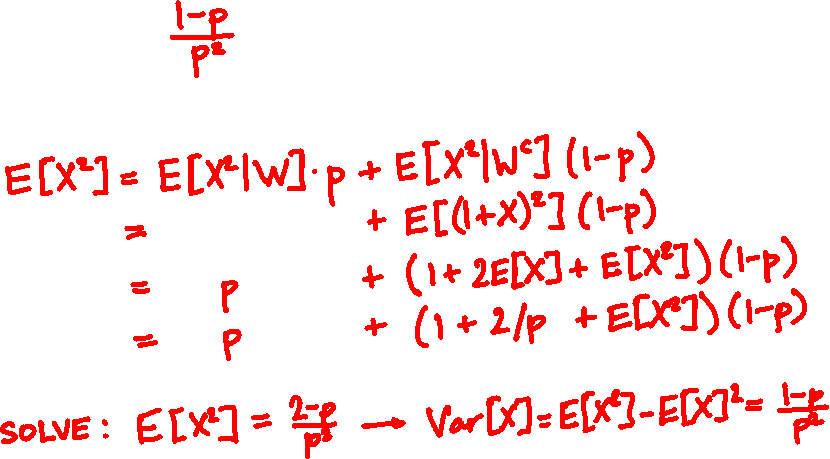 1-p / p²
E[X²] = E[X²|W]·p + E[X²|Wᶜ](1-p)
= + E[(1+X)²](1-p)
= p + (1+2E[X]+E[X²])(1-p)
= p + (1+2/p +E[X²])(1-p)
SOLVE: E[X²] = 2-p / p² → Var[X]=E[X²]-E[X]²= 1-p / p²